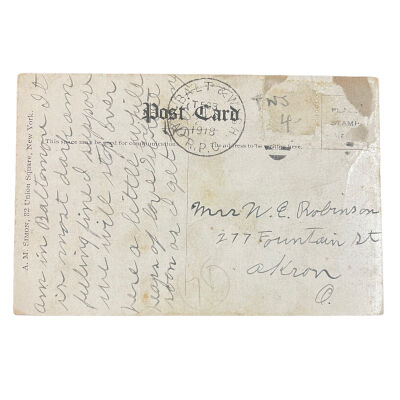 Post Card
BALT & WASH
FEB
1918
R.P.O.
PLACE
STAMP
4
This space may be used for communication.
The address to be
A. M. SIMON, 32 Union Square, New York.
am in Baltomore It
is most dark am
feeling fine I suppose
we will stop over
here a little while
soon as I get
Mrs N. E. Robinson
277 Fountain St
Akron
O.